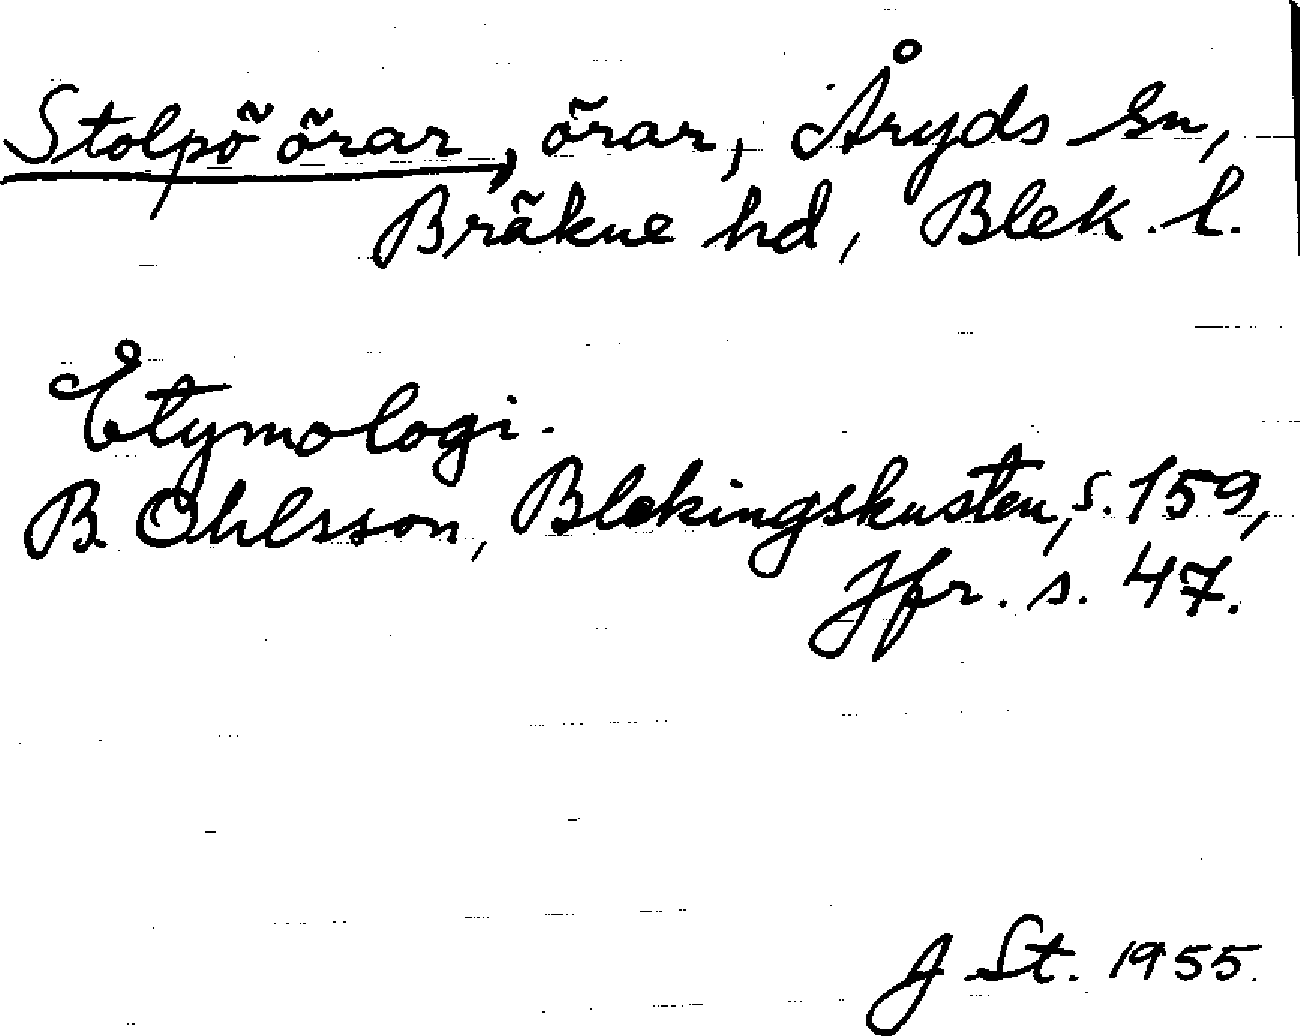 Stolpö örar, örar, Åryds sn,
Bräkne hd, Blek. l.
Etymologi.
B. Ohlsson, Blekingskusten, s. 159,
Jfr. s. 47.
J St. 1955.